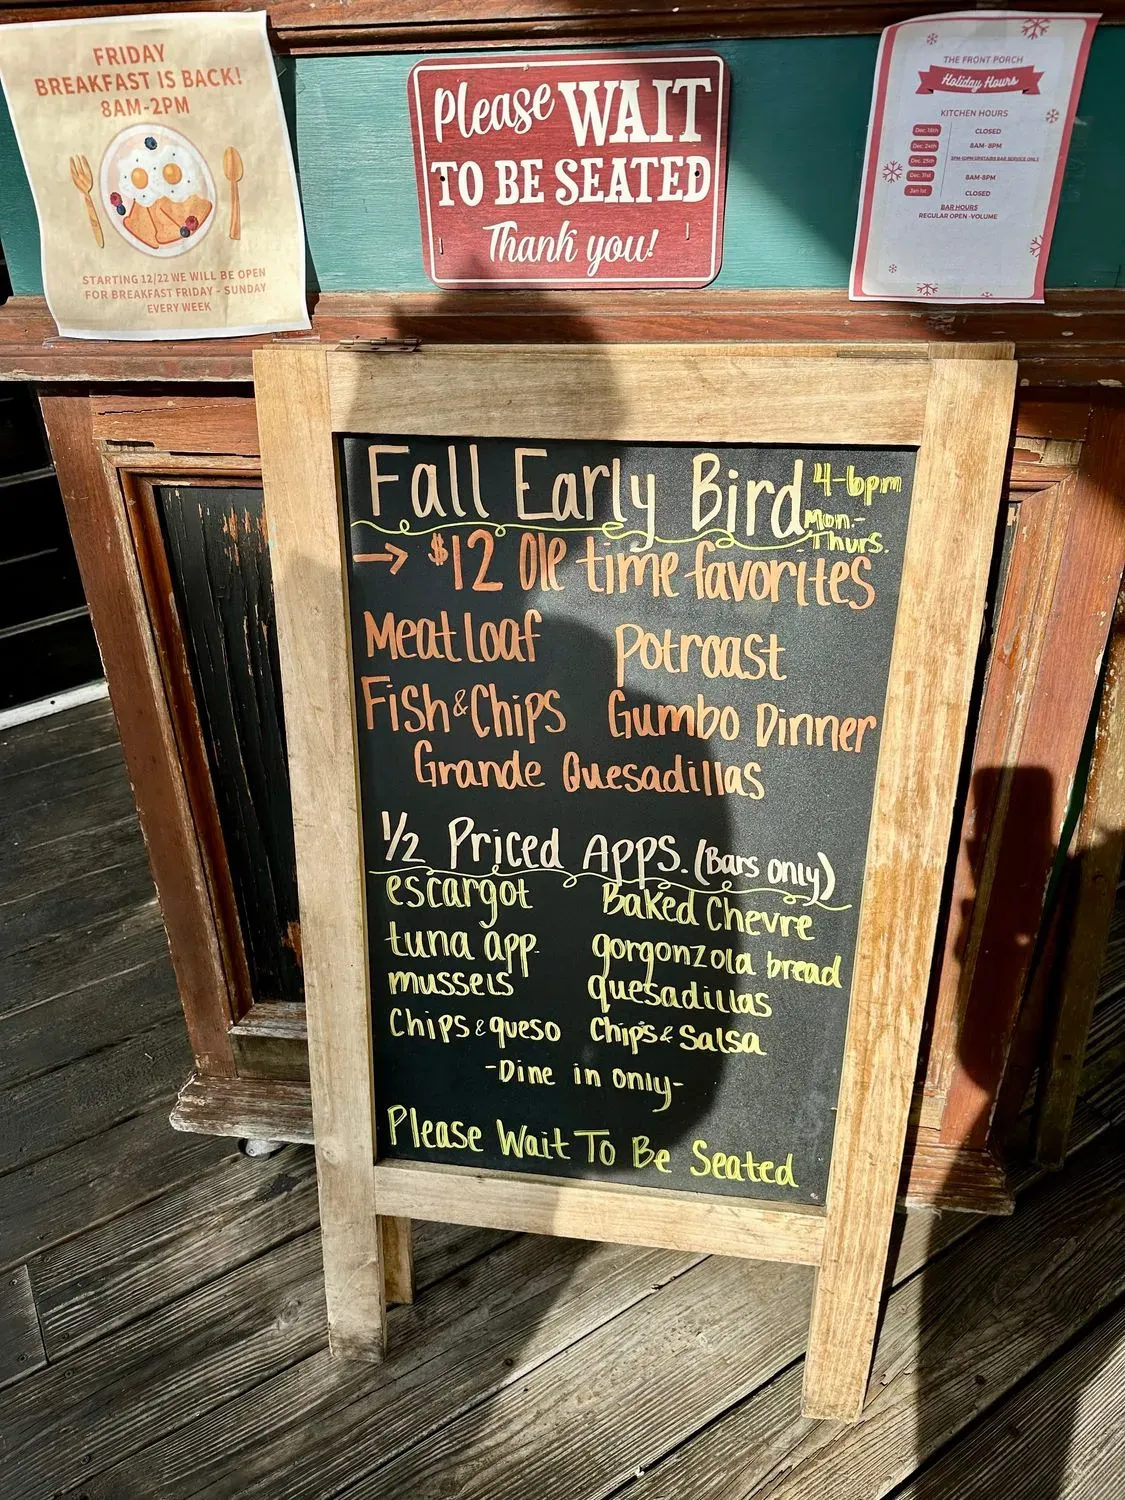 FRIDAY
BREAKFAST IS BACK!
8AM-2PM
STARTING 12/22 WE WILL BE OPEN
FOR BREAKFAST FRIDAY - SUNDAY
EVERY WEEK
Please WAIT
TO BE SEATED
Thank you!
THE FRONT PORCH
Holiday Hours
KITCHEN HOURS
CLOSED
Dec. 24th 8AM-8PM
Dec. 25th 5PM-10PM UPSTAIRS BAR SERVICE ONLY
Dec. 31st 8AM-8PM
Jan 1st CLOSED
BAR HOURS
REGULAR OPEN -VOLUME
Fall Early Bird 4-6pm
Mon.-
Thurs.
→ $12 Ole time favorites
Meatloaf Potroast
Fish & Chips Gumbo Dinner
Grande Quesadillas
1/2 Priced Apps. (Bars only)
escargot Baked Chevre
tuna app. gorgonzola bread
mussels quesadillas
Chips & queso Chips & Salsa
-Dine in only-
Please Wait To Be Seated